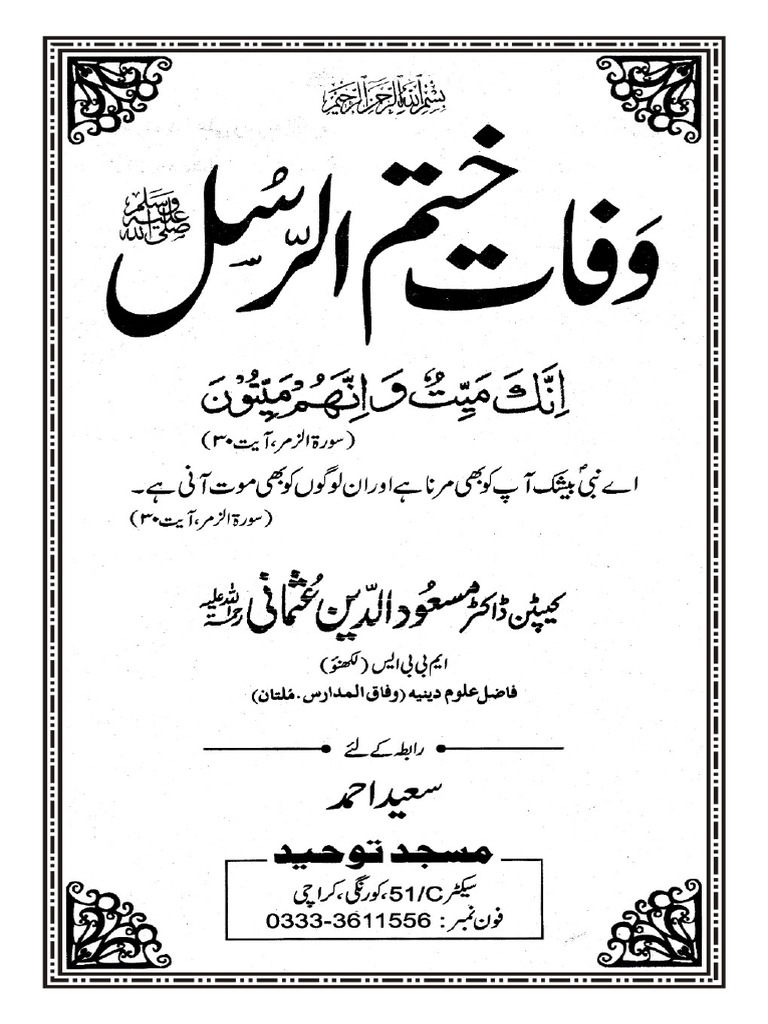 بسم الله الرحمن الرحيم
وفات ختم الرّسل صلى الله عليه وسلم
اِنَّكَ مَيِّتٌ وَ اِنَّهُمْ مَيِّتُوْنَ
(سورۃ الزمر، آیت ۳۰)
اے نبیؐ بیشک آپ کو بھی مرنا ہے اور ان لوگوں کو بھی موت آنی ہے۔
(سورۃ الزمر، آیت ۳۰)
کیپٹن ڈاکٹر مسعود الدّین عثمانی رحمۃ اللہ علیہ
ایم بی بی ایس (لکھنؤ)
فاضل علوم دینیہ (وفاق المدارس۔ ملتان)
رابطہ کے لئے
سعید احمد
مسجد توحید
سیکٹر 51/C، کورنگی، کراچی
فون نمبر: 0333-3611556